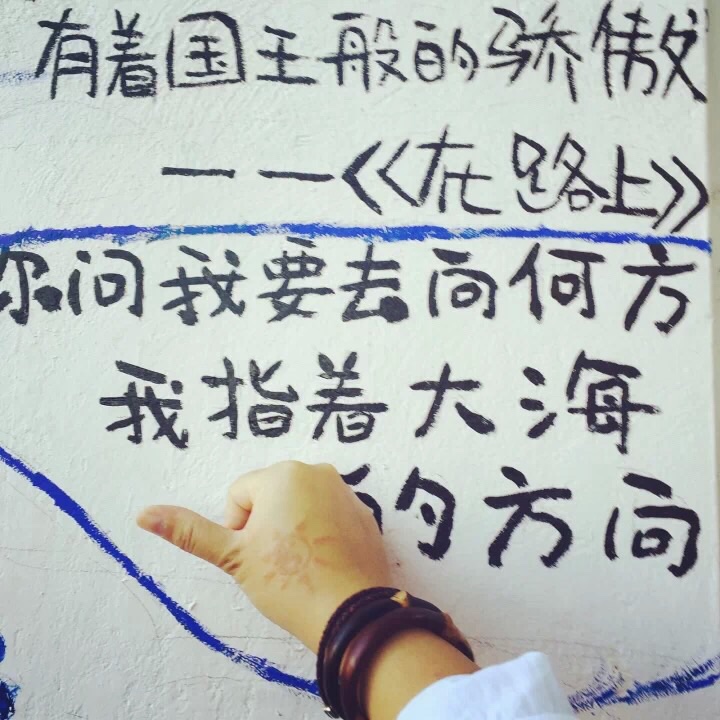 有着国王般的骄傲
——《在路上》
你问我要去向何方
我指着大海
的方向